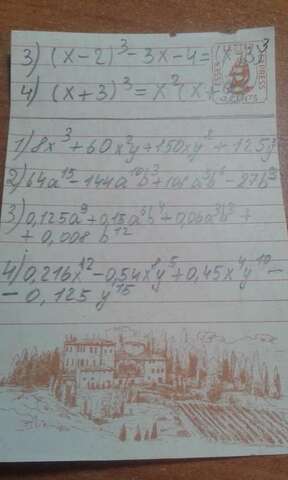 3) (x-2)³-3x-4=(x-3)³
4) (x+3)³=x²(x+
1) 8x³+60x²y+150xy²+125y³
2) 64a¹⁵-144a¹⁰b³+108a⁵b⁶-27b⁹
3) 0,125a⁹+0,15a⁶b⁴+0,06a³b⁸+
+0,008b¹²
4) 0,216x¹²-0,54x⁸y⁵+0,45x⁴y¹⁰-
-0,125y¹⁵